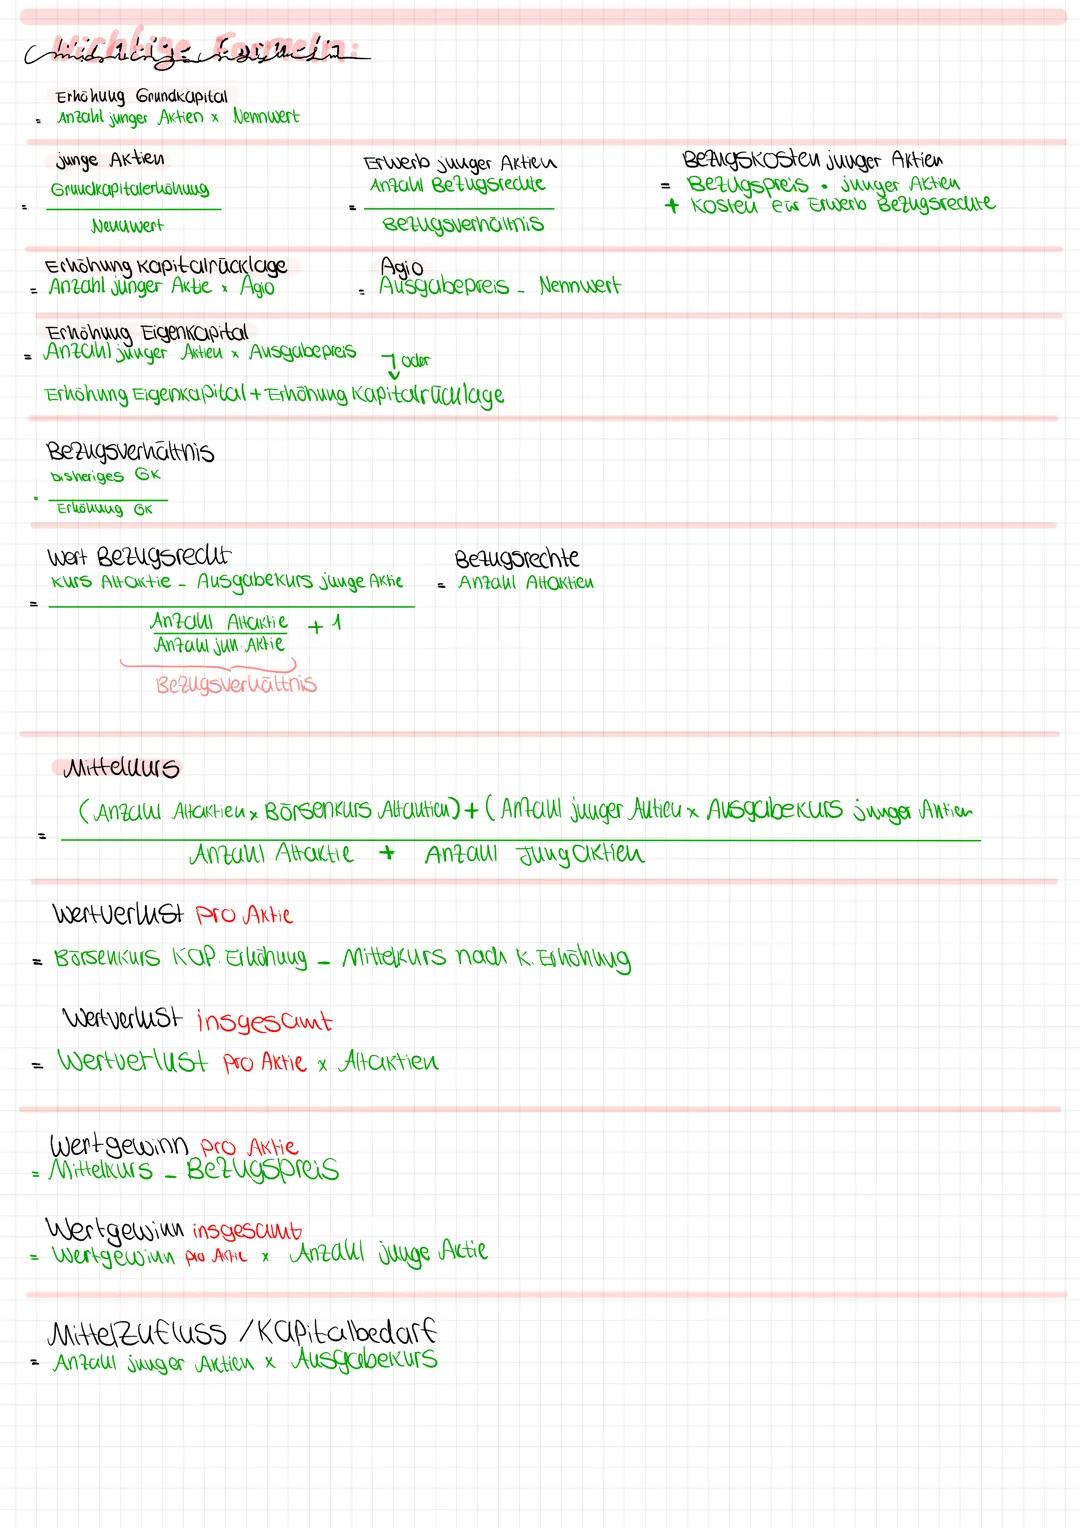 Wichtige Formeln:
Erhöhung Grundkapital
= Anzahl junger Aktien x Nennwert
junge Aktien
Grundkapitalerhöhung
=
Nennwert
Erwerb junger Aktien
Anzahl Bezugsrechte
=
Bezugsverhältnis
Bezugskosten junger Aktien
= Bezugspreis • junger Aktien
+ Kosten für Erwerb Bezugsrechte
Erhöhung Kapitalrücklage
= Anzahl junger Aktie x Agio
Agio
= Ausgabepreis - Nennwert
Erhöhung Eigenkapital
= Anzahl junger Aktien x Ausgabepreis
oder
Erhöhung Eigenkapital + Erhöhung Kapitalrücklage
Bezugsverhältnis
bisheriges GK
=
Erhöhung GK
Wert Bezugsrecht
Kurs Altaktie - Ausgabekurs junge Aktie
=
Anzahl Altaktie + 1
Anzahl jun. Aktie
Bezugsverhältnis
Bezugsrechte
= Anzahl Altaktien
Mittelkurs
(Anzahl Altaktien x Börsenkurs Altaktien) + (Anzahl junger Aktien x Ausgabekurs junger Aktien
=
Anzahl Altaktie + Anzahl Jungaktien
Wertverlust pro Aktie
= Börsenkurs Kap. Erhöhung - Mittelkurs nach K. Erhöhung
Wertverlust insgesamt
= Wertverlust pro Aktie x Altaktien
Wertgewinn pro Aktie
= Mittelkurs - Bezugspreis
Wertgewinn insgesamt
= Wertgewinn pro Aktie x Anzahl junge Aktie
Mittelzufluss / Kapitalbedarf
= Anzahl junger Aktien x Ausgabekurs